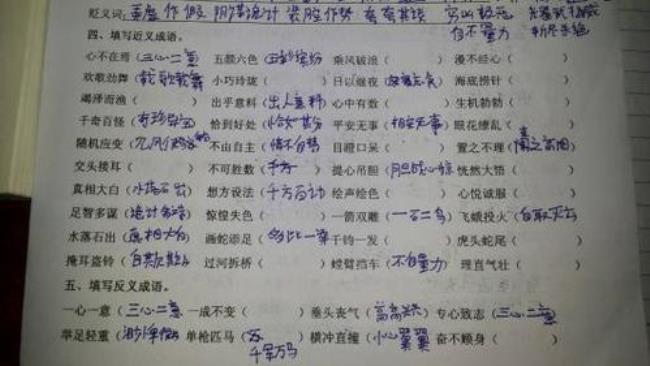 贬义词: 弄虚作假 阴谋诡计 装腔作势 夸夸其谈 穷凶极恶
自不量力
四、填写近义成语。
心不在焉(三心二意) 五颜六色(五彩缤纷) 乘风破浪( ) 漫不经心( )
欢歌劲舞(载歌载舞) 小巧玲珑( ) 日以继夜(废寝忘食) 海底捞针( )
竭泽而渔( ) 出乎意料(出人意料) 心中有数( ) 生机勃勃( )
千奇百怪( ) 恰到好处(恰如其分) 平安无事(相安无事) 眼花缭乱( )
随机应变( ) 不由自主(情不自禁) 目瞪口呆( ) 置之不理(置之高阁)
交头接耳( ) 不可胜数( ) 提心吊胆(胆战心惊) 恍然大悟( )
真相大白(水落石出) 想方设法(千方百计) 绘声绘色( ) 心悦诚服( )
足智多谋( ) 惊惶失色( ) 一箭双雕(一石二鸟) 飞蛾投火(自取灭亡)
水落石出(真相大白) 画蛇添足(多此一举) 千钧一发( ) 虎头蛇尾( )
掩耳盗铃(自欺欺人) 过河拆桥( ) 螳臂挡车(不自量力) 理直气壮( )
五、填写反义成语。
一心一意(三心二意) 一成不变( ) 垂头丧气( ) 专心致志(三心二意)
举足轻重( ) 单枪匹马( 千军万马 横冲直撞(小心翼翼) 奋不顾身( )